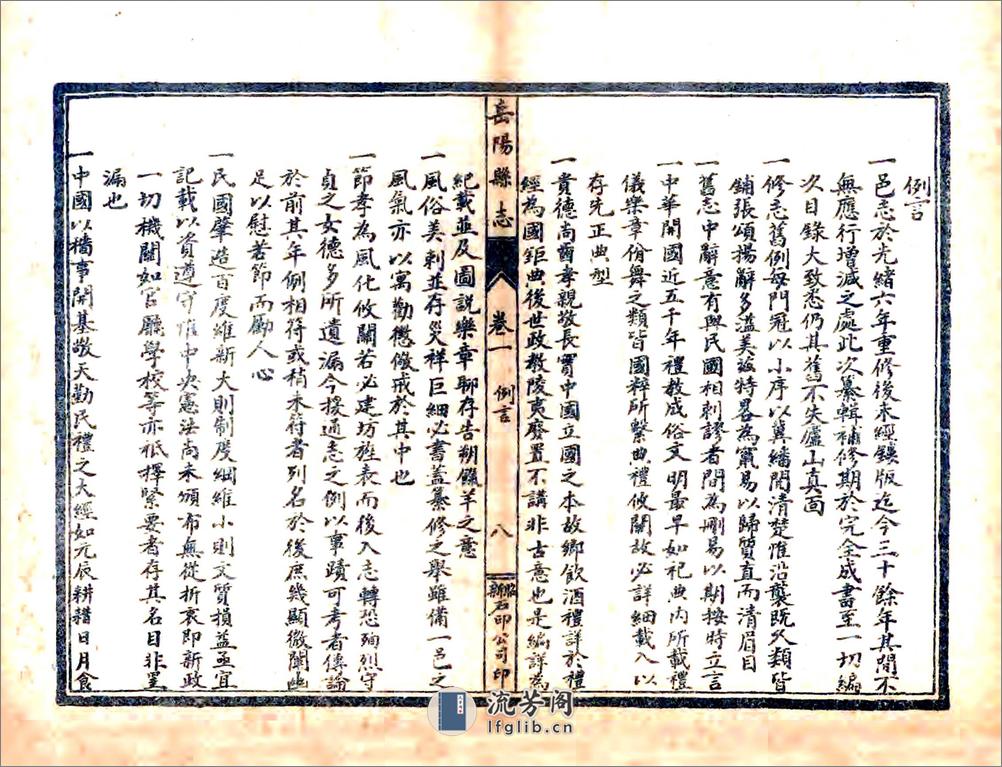 例言
一邑志於光緒六年重修後未經鋟版迄今三十餘年其間不
無應行增減之處此次纂輯補修期於完全成書至一切編
次目錄大致悉仍其舊不失廬山真面
一修志舊例每門冠以小序以冀繙閱清楚惟沿襲既久類皆
鋪張頌揚辭多溢美茲特畧為竄易以歸質直而清眉目
一舊志中辭意有與民國相刺謬者間為刪易以期按時立言
一中華開國近五千年禮教成俗文明最早如祀典內所載禮
儀樂章佾舞之類皆國粹所繫典禮攸關故必詳細載入以
存先正典型
一貴德尚齒孝親敬長實中國立國之本故鄉飲酒禮詳於禮
經為國鉅典後世政教陵夷廢置不講非古意也是編詳為
岳陽縣志
卷一 例言
八
石印公司印
紀載並及圖說樂章聊存告朔餼羊之意
一風俗美刺並存災祥巨細必書蓋纂修之舉雖備一邑之
風氣亦以寓勸懲儆戒於其中也
一節孝為風化攸關若必建坊旌表而後入志轉恐殉烈守
貞之女德多所遺漏今援通志之例以事蹟可考者傳論
於前其年例相符或稍未符者列名於後庶幾顯微闡幽
足以慰苦節而勵人心
一民國肇造百度維新大則制度綱維小則文質損益亟宜
記載以資遵守惟中央憲法尚未頒布無從折衷即新政
一切機關如官廳學校等亦祇擇緊要者存其名目非罣
漏也
一中國以穡事開基敬天勤民禮之大經如元辰耕耤日月食
流芳阁
lfglib.cn